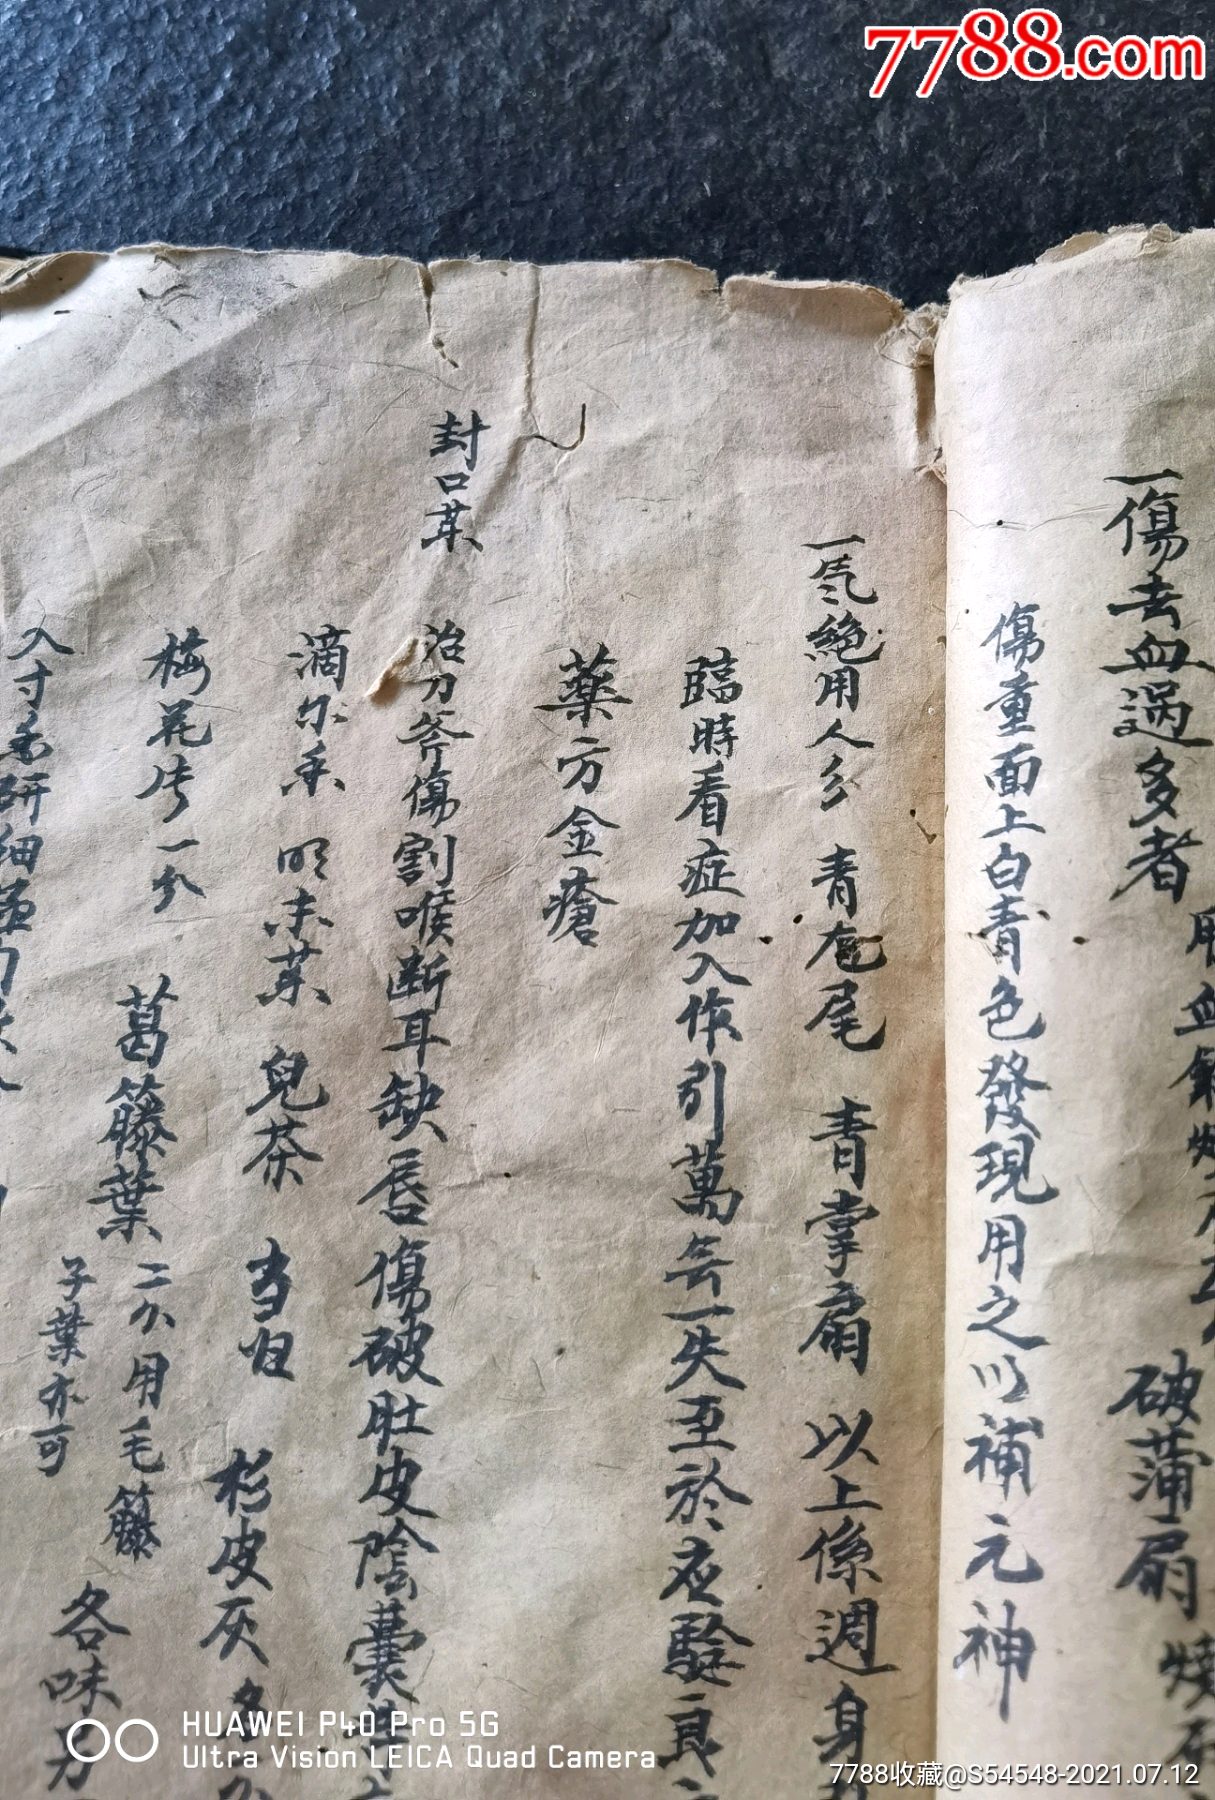 7788.com
一傷去血過多者
用血
破蒲扇
燒
傷重面上白青色發現用之以補元神
一氣絕用人 青庖尾 青掌扇 以上係週身
臨時看症加入作引萬無一失至於应驗良
藥方金瘡
封口葯
治刀斧傷割喉断耳缺唇傷破肚皮陰囊
滴尔香 明末葯 兒茶 当归 杉皮灰 各
梅花片一分 葛籐葉 二分用毛籐
子葉亦可 各味
入寸香研細
HUAWEI P40 Pro 5G
Ultra Vision LEICA Quad Camera
7788收藏@S54548-2021.07.12